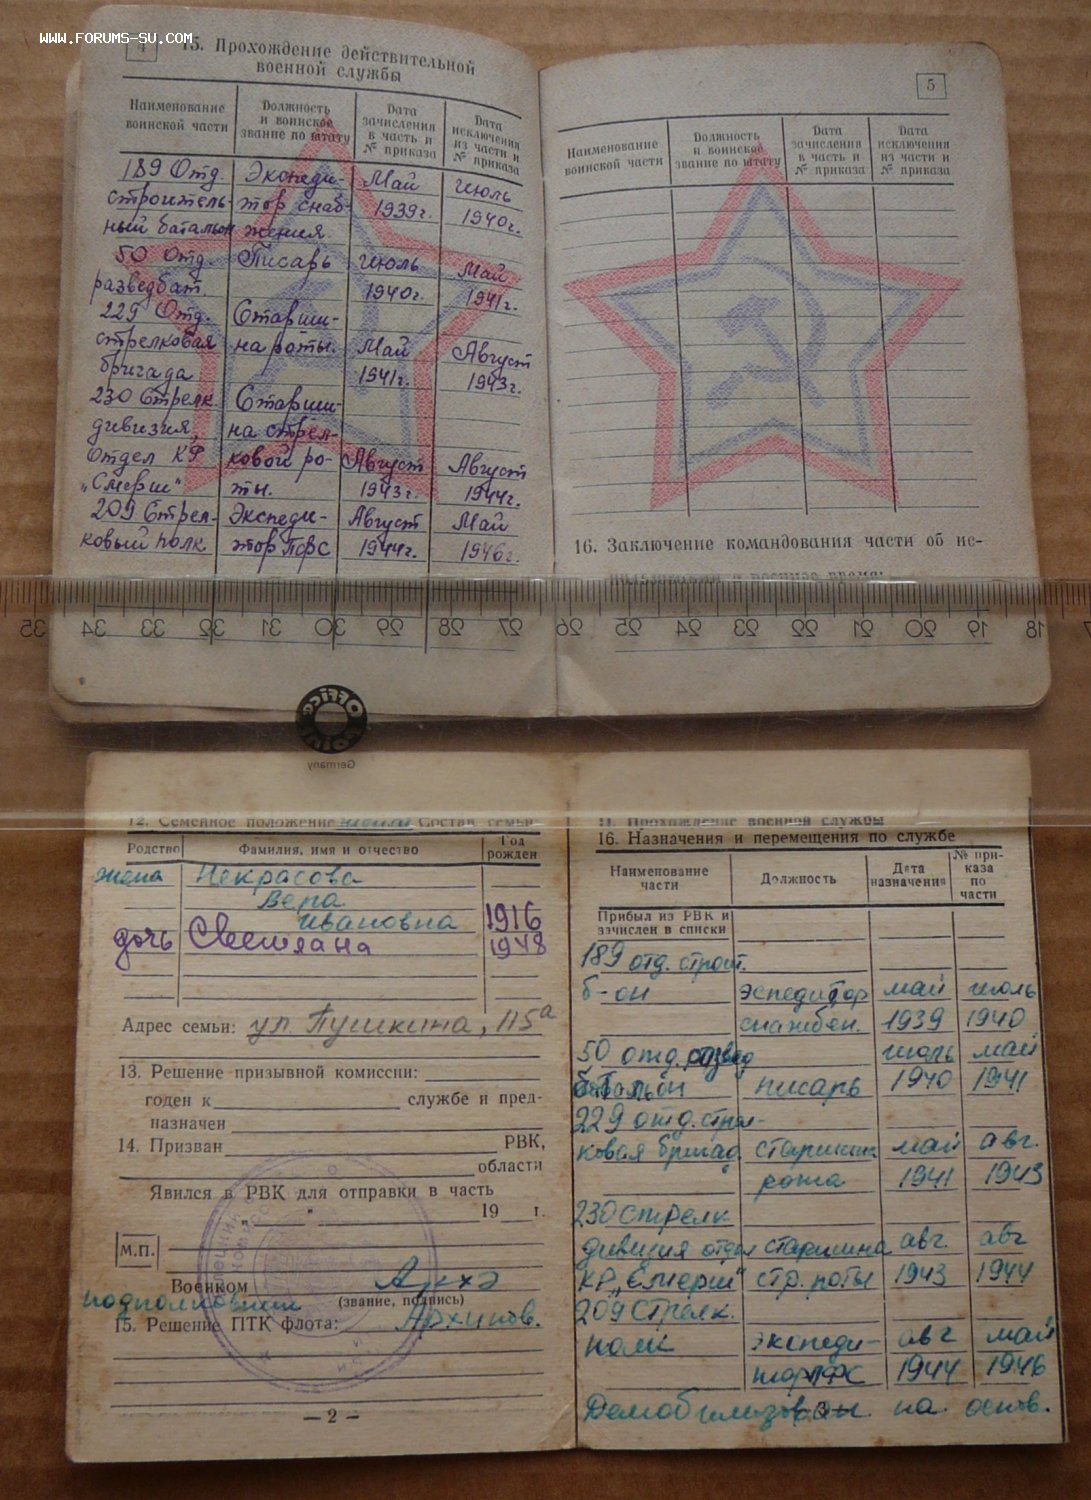 www.forums-su.com
4
15. Прохождение действительной
военной службы
Наименование воинской части
Должность и воинское звание по штату
Дата зачисления в часть и № приказа
Дата исключения из части и № приказа
189 Отд. Экспеди- Май Июль
строитель- тор снаб- 1939г. 1940г.
ный батальон жения
50 Отд. Писарь Июль Май
разведбат. 1940г. 1941г.
229 Отд. Старши-
стрелковая на роты. Май Август
бригада 1941г. 1943г.
230 Стрелк. Старши-
дивизия, на стрел-
Отдел КР ковой ро- Август Август
"Смерш" ты. 1943г. 1944г.
209 Стрел- Экспеди- Август Май
ковый полк тор ПФС 1944г. 1946г.
5
Наименование воинской части
Должность и воинское звание по штату
Дата зачисления в часть и № приказа
Дата исключения из части и № приказа
16. Заключение командования части об ис-
пользовании в военное время:
35 34 33 32 31 30 29 28 27 26 25 24 23 22 21 20 19 18
Office
Germany
12. Семейное положение Состав семьи
Родство Фамилия, имя и отчество Год рожден
жена Некрасова
Вера
Ивановна 1916
дочь Светлана 1948
Адрес семьи: ул. Пушкина, 115а
13. Решение призывной комиссии:
годен к службе и пред-
назначен
14. Призван РВК,
области
Явился в РВК для отправки в часть
" " 19 г.
М.П.
Военком
подполковник (звание, подпись)
15. Решение ПТК флота: Архипов.
— 2 —
II. Прохождение военной службы
16. Назначения и перемещения по службе
Наименование части
Должность
Дата назначения
№ при-каза по части
Прибыл из РВК и
зачислен в списки
189 отд. строит.
б-он эспедитор май июль
снабжен. 1939 1940
50 отд. развед июль май
батальон писарь 1940 1941
229 отд. стрел-
ковая бригад. старшина май авг.
рота 1941 1943
230 стрелк
дивизия отдел старшина авг. авг
КР "Смерш" стр. роты 1943 1944
209 Стрелк.
полк экспеди- авг май
тор ПФС 1944 1946
Демобилизован на основ.